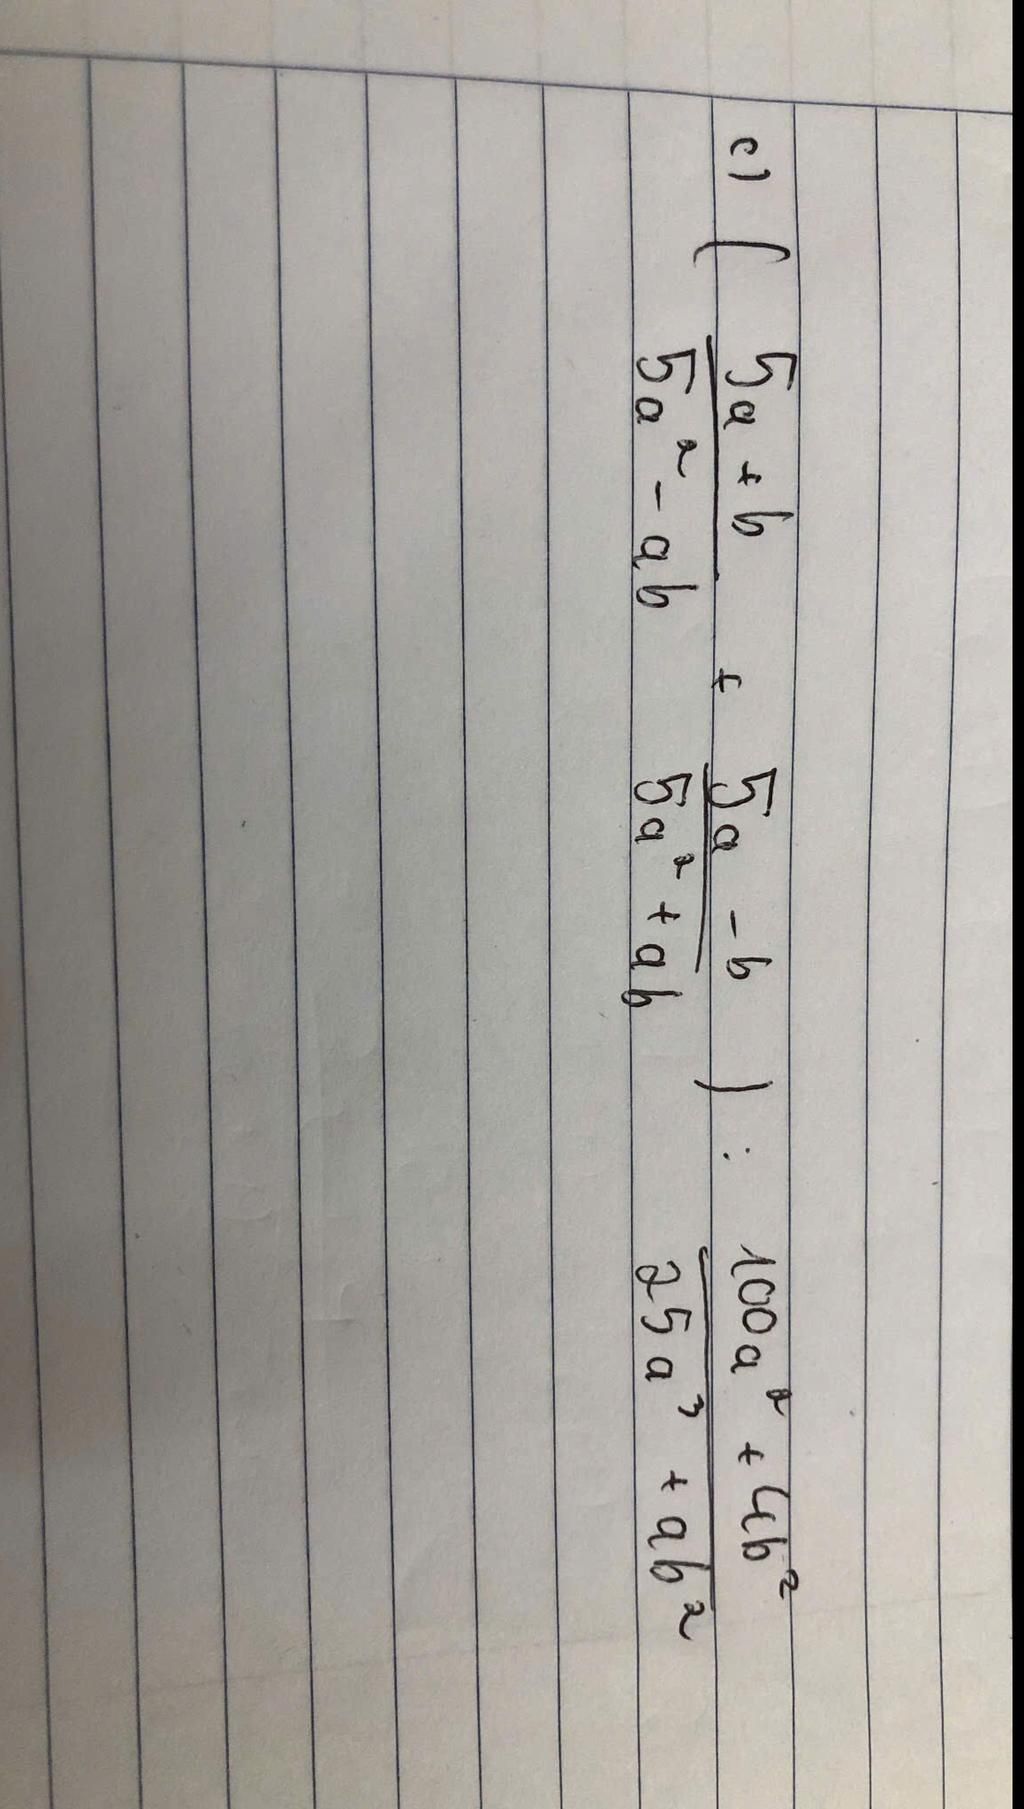 c) ( 5a + b / 5a² - ab + 5a - b / 5a² + ab ) : 100a² + 4b² / 25a³ + ab²